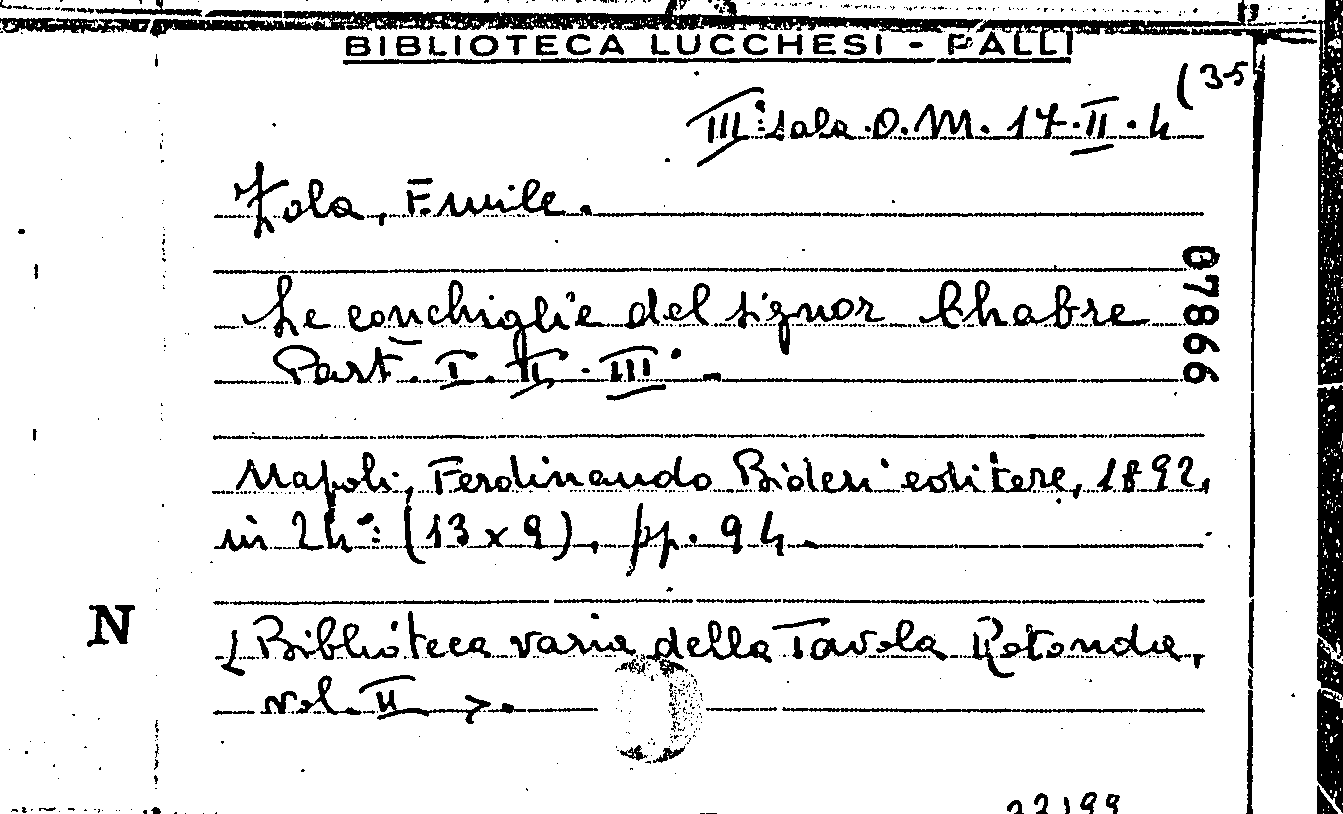 BIBLIOTECA LUCCHESI - PALLI
(35
III: sala. O. M. 17. II. 4
Zola, Emile.
Le conchiglie del signor Chabre
Part. I. II. III. -
07866
Napoli, Ferdinando Bideri editore, 1892,
in 24°: (13 x 9), pp. 94.
N
< Biblioteca varia della Tavola Rotonda,
vol. II >.